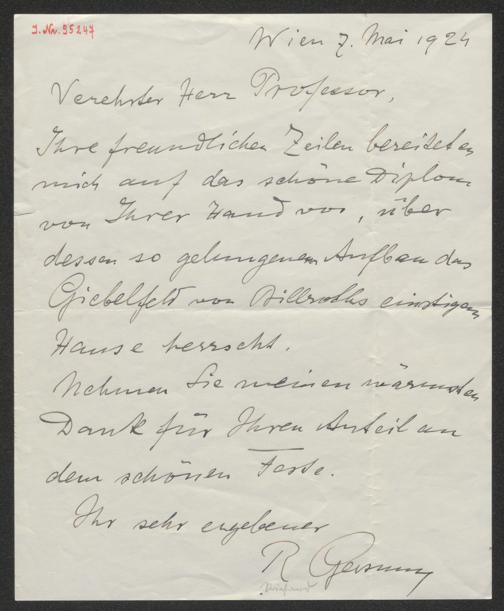 I. Nr. 95247
Wien 7. Mai 1924
Verehrter Herr Professor,
Ihre freundlichen Zeilen bereiteten
mich auf das schöne Diplom
von Ihrer Hand vor, über
dessen so gelungenem Aufbau das
Giebelfeld von Billroths einstigem
Hause herrscht.
Nehmen Sie meinen wärmsten
Dank für Ihren Anteil an
dem schönen Feste.
Ihr sehr ergebener
R Gersuny